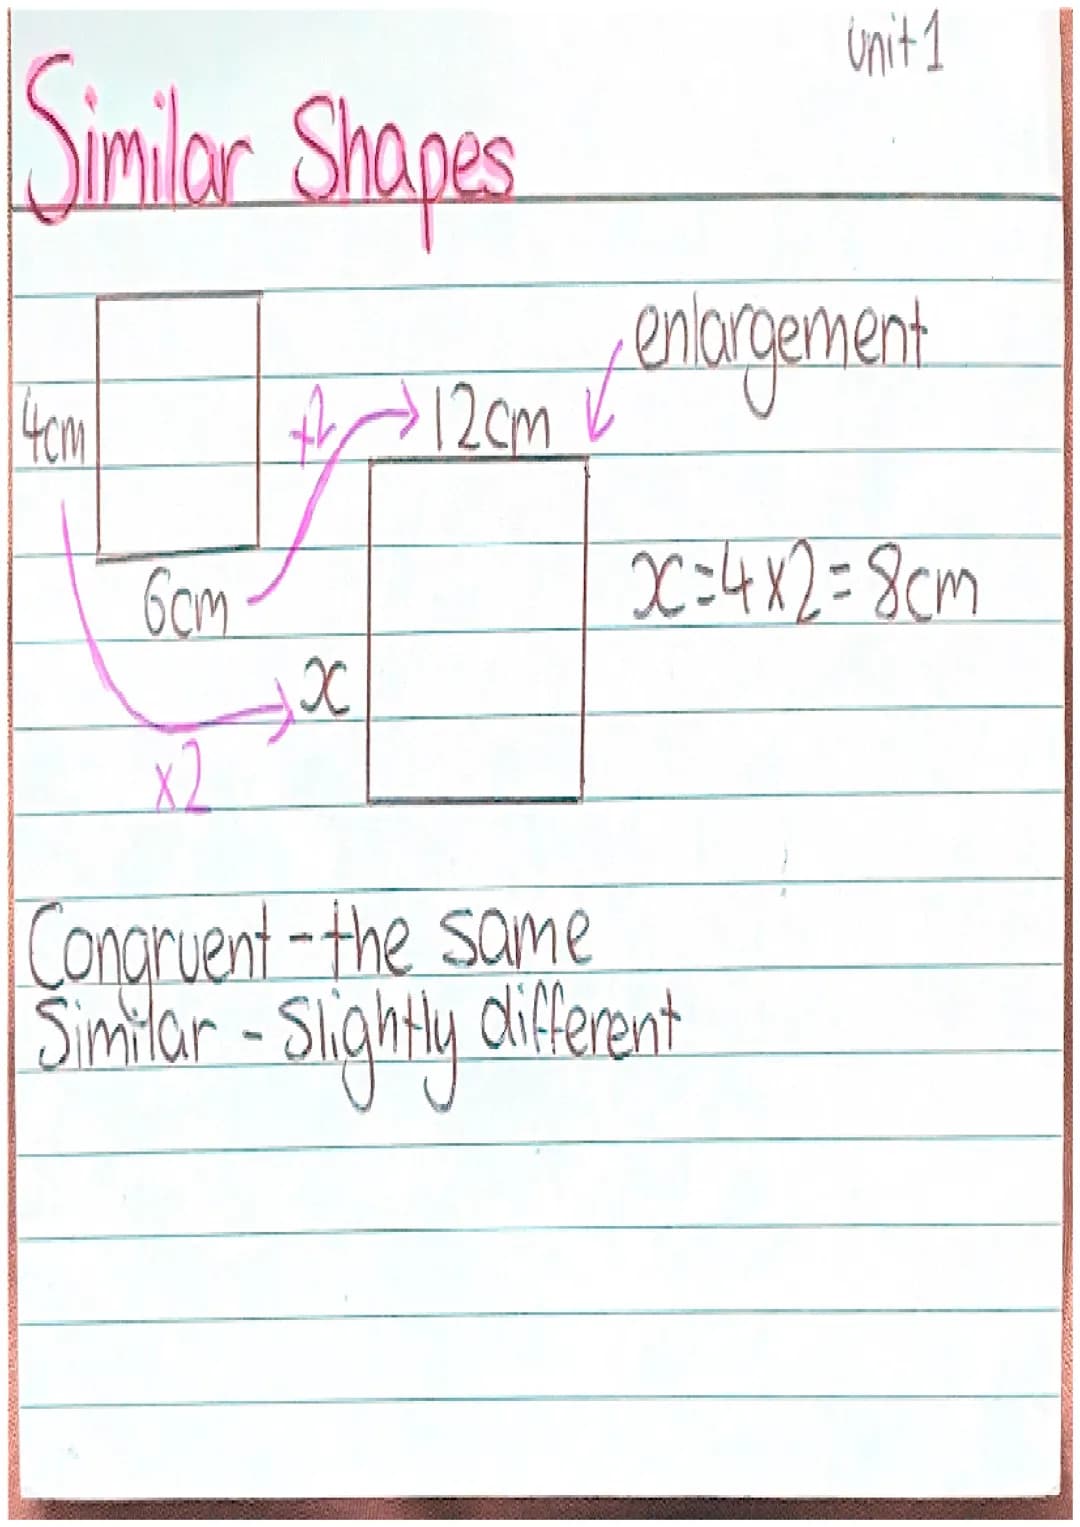 Unit 1
Similar Shapes
enlargement
4cm
x2
12cm
6cm
x=4x2=8cm
x
x2
Congruent - the same
Similar - Slightly different